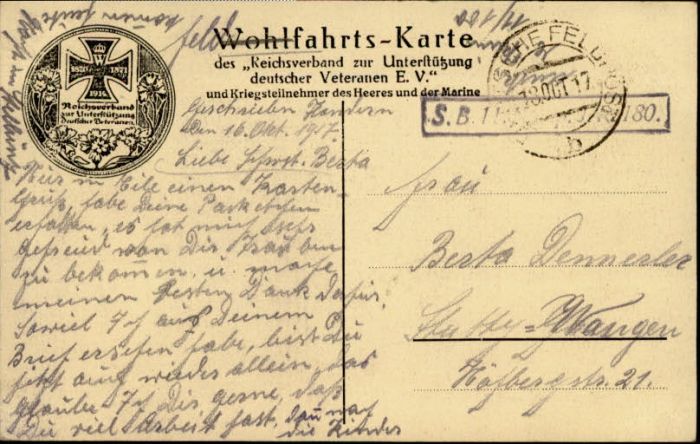 Wohlfahrts-Karte
des „Reichsverband zur Unterstützung
deutscher Veteranen E. V."
und Kriegsteilnehmer des Heeres und der Marine
1914
Reichsverband
zur Unterstützung
Deutscher Veteranen.
Feld
Geschrieben Flandern
den 16. Okt. 1917.
Liebe Schwst. Berta
Nur in Eile einen Karten-
gruß, habe Deine Päckchen
erhalten, es hat mich sehr
gefreut von Dir
zu bekommen. u. mache
meinen besten Dank dafür.
Soviel Ich aus Deinem
Brief ersehen habe, bist Du
jetzt auch wieder allein, das
glaube Ich Dir gerne, daß
Du viel Arbeit hast, dazu noch
die Kinder
S. B. 180.
FELDPOST
18 OCT 17
b
Frau
Berta Dennerler
Stuttg.-Wangen
Höfbergstr. 21.